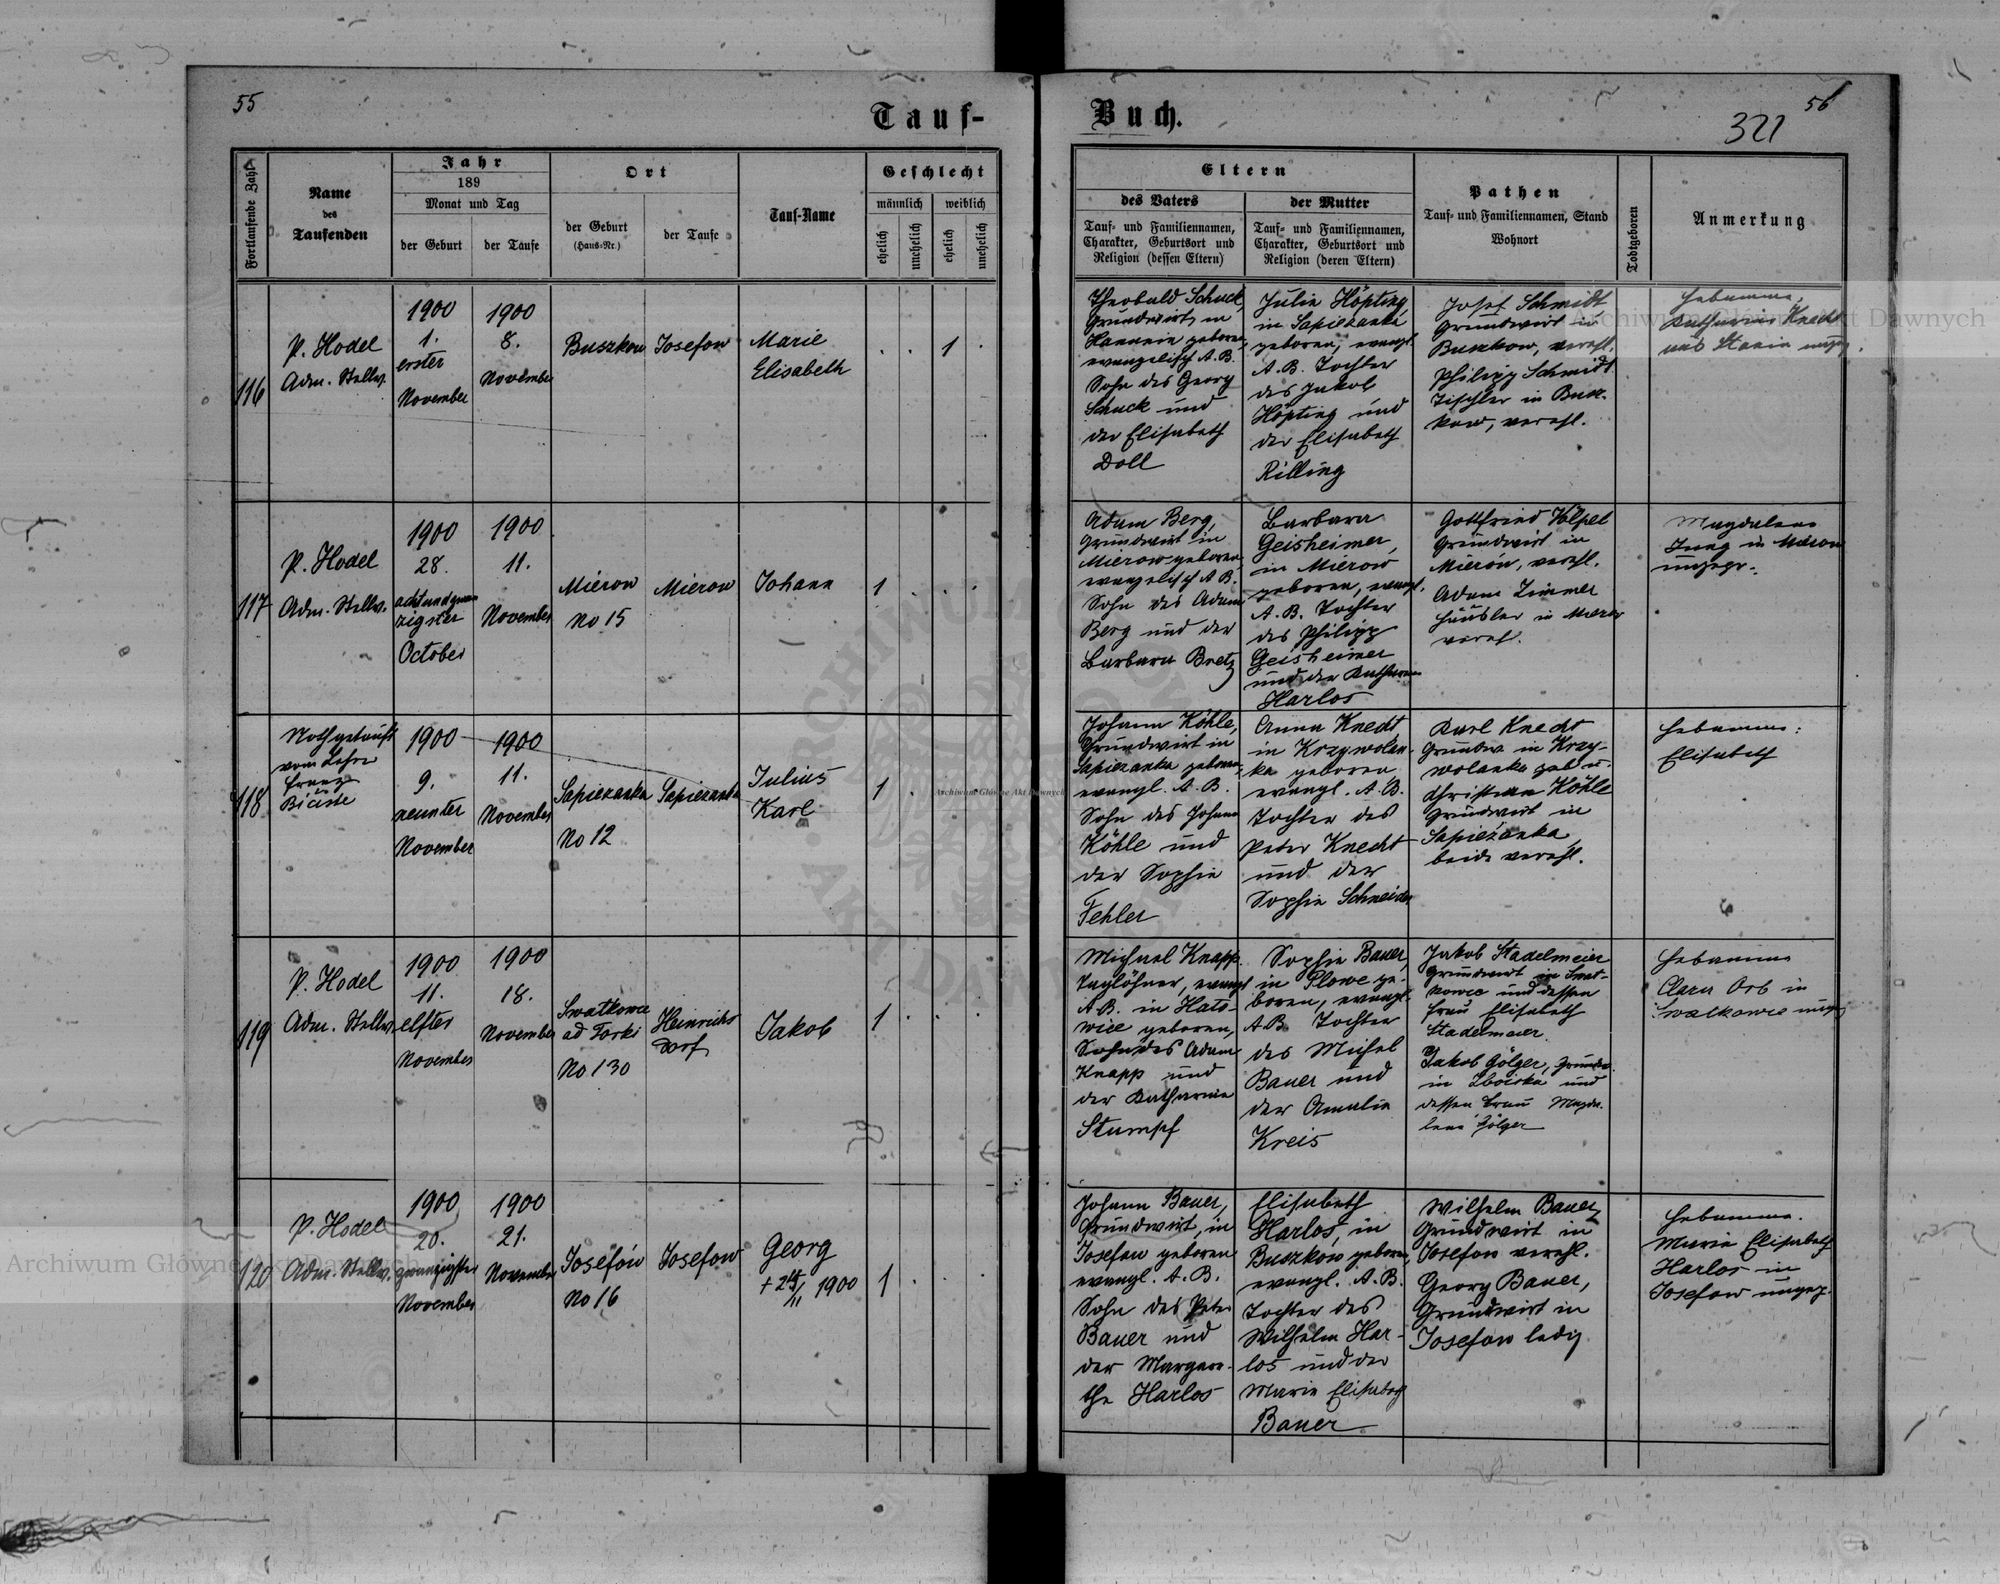 55
Tauf-
Buch.
56
321
Fortlaufende Zahl
Name
des
Taufenden
Jahr
189
Monat und Tag
der Geburt
der Taufe
Ort
der Geburt
(Haus-Nr.)
der Taufe
Tauf-Name
Geschlecht
männlich
weiblich
ehelich
unehelich
ehelich
unehelich
Eltern
des Vaters
Tauf- und Familiennamen,
Charakter, Geburtsort und
Religion (dessen Eltern)
der Mutter
Tauf- und Familiennamen,
Charakter, Geburtsort und
Religion (deren Eltern)
Pathen
Tauf- und Familiennamen, Stand
Wohnort
Todtgeboren
Anmerkung
116
P. Hodel
Adm. Stellv.
1900
1.
erster
November
1900
8.
November
Buszkow
Josefow
Marie
Elisabeth
1
Theobald Schuck,
Grundwirt, in
geboren,
evangelisch A. B.
Sohn des Georg
Schuck und
der Elisabeth
Doll
Julie Höpting
in Sapiezanka
geboren, evangl.
A. B. Tochter
des Jakob
Höpting und
der Elisabeth
Rilling
Josef Schmidt
Grundwirt in
Buszkow, verehl.
Philipp Schmidt
Tischler in Busz-
kow, verehl.
Hebamme,
Katharina Knecht
117
P. Hodel
Adm. Stellv.
1900
28.
achtundzwan
zigster
October
1900
11.
November
Mierow
No 15
Mierow
Johann
1
Adam Berg,
Grundwirt in
Mierow geboren,
evangelisch A B.
Sohn des Adam
Berg und der
Barbara Bretz
Barbara
Geisheimer,
in Mierow
geboren, evangl.
A. B. Tochter
des Philipp
Geisheimer
und der Katharina
Harlos
Gottfried Völpel
Grundwirt in
Mierow, verehl.
Adam Zimmer
Häusler in Mierow
verehl.
Magdalena
Jung in Mierow
ungepr.
118
Nothgetauft
vom Lehrer
Franz
1900
9.
neunter
November
1900
11.
November
Sapiezanka
No 12
Sapiezanka
Julius
Karl
1
Johann Köhle,
Grundwirt in
Sapiezanka geboren,
evangl. A. B.
Sohn des Johann
Köhle und
der Sophie
Fehler
Anna Knecht,
in Krzywolan-
ka geboren,
evangl. A. B.
Tochter des
Peter Knecht
und der
Sophie Schneider
Karl Knecht
Grundw. in Krzy-
wolanka und
Christian Köhle
Grundwirt in
Sapiezanka,
beide verehl.
Hebamme:
Elisabeth
119
P. Hodel
Adm. Stellv.
1900
11.
elfter
November
1900
18.
November
Swatkowce
ad Torki
No 130
Heinrichs
dorf
Jakob
1
Michael Knapp.
Taglöhner, evangl
A.B. in Hato-
wice geboren,
Sohn des Adam
Knapp und
der Katharina
Stumpf
Sophie Bauer,
in Plowe ge-
boren, evangl.
A. B. Tochter
des Michel
Bauer und
der Amalia
Kreis
Jakob Stadelmeier
Grundwirt in Swat-
kowce und dessen
Frau Elisabeth
Stadelmeier.
Jakob Gölger, Grundw.
in Zboiska und
dessen Frau Magda-
lena Gölger
Hebamme
Clara Orb in
120
P. Hodel
Adm. Stellv.
1900
20.
zwanzigster
November
1900
21.
November
Josefów
No 16
Josefow
Georg
+ 24/11 1900
1
Johann Bauer,
Grundwirt, in
Josefow geboren
evangl. A. B.
Sohn des Peter
Bauer und
der Margare-
the Harlos
Elisabeth
Harlos, in
Buszkow geboren,
evangl. A. B.
Tochter des
Wilhelm Har-
los und der
Marie Elisabeth
Bauer
Wilhelm Bauer,
Grundwirt in
Josefow verehl.
Georg Bauer,
Grundwirt in
Josefow ledig
Hebamme.
Marie Elisabeth
Harlos in
Josefow ungep.
Archiwum Główne Akt Dawnych
Archiwum Główne Akt Dawnych
Archiwum Główne Akt Dawnych